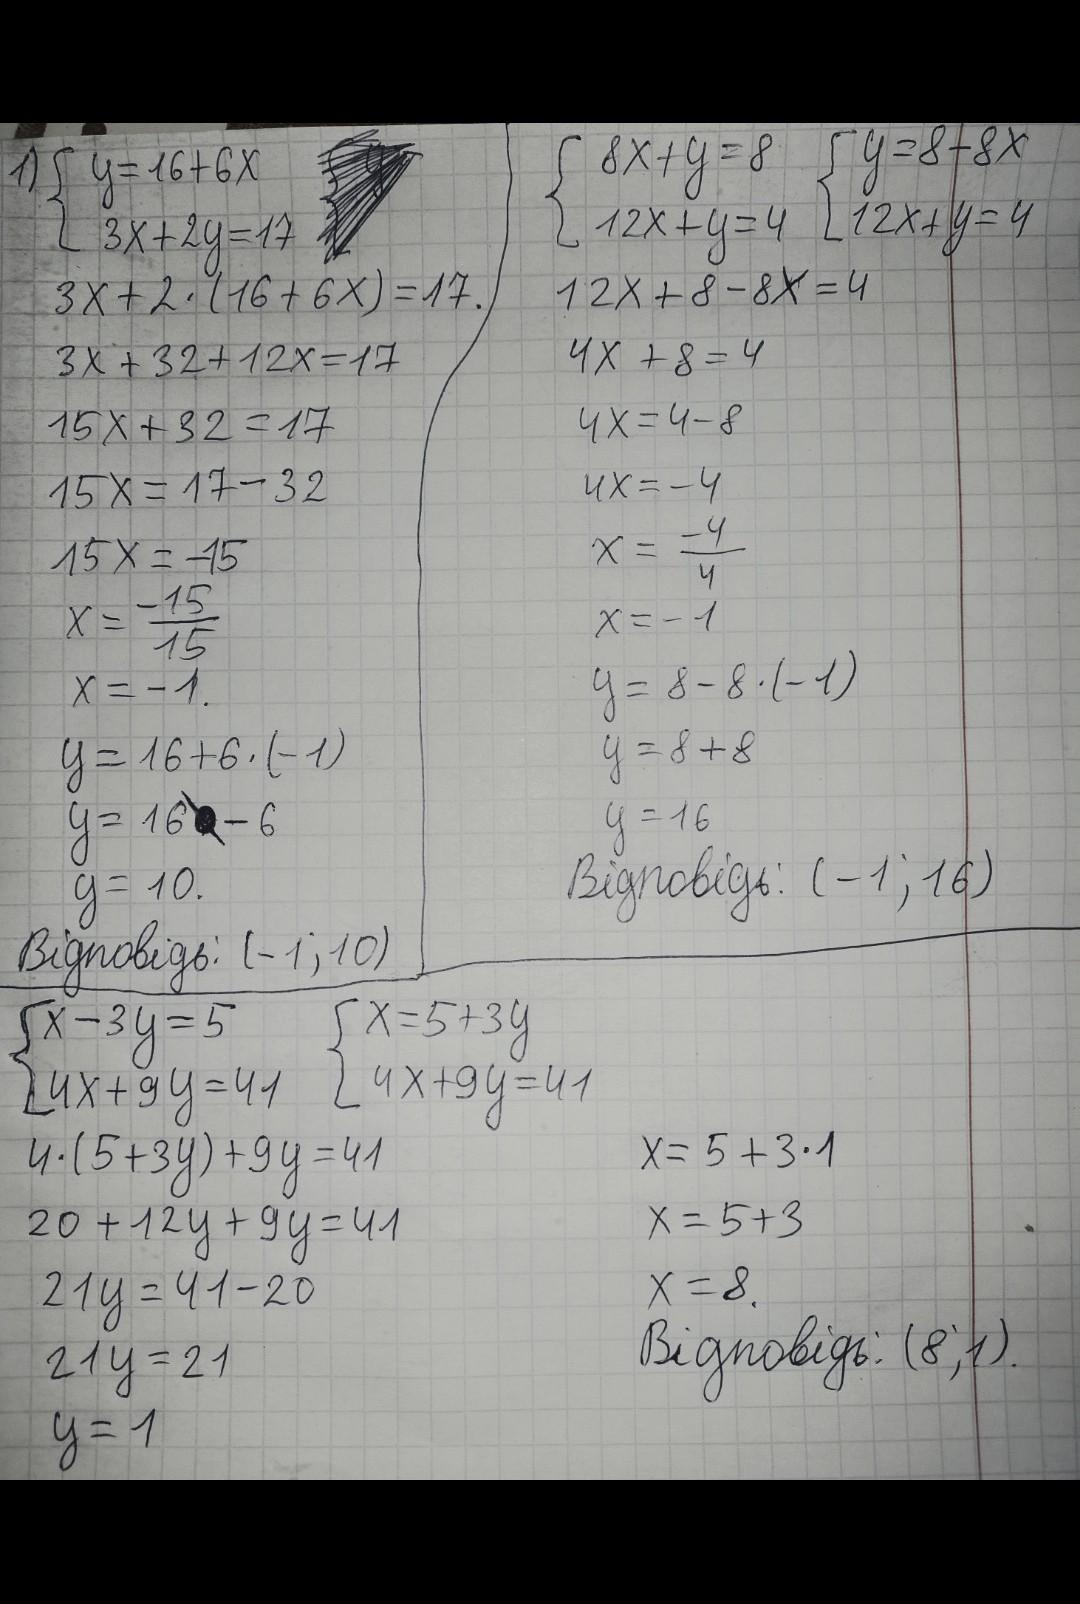 1) { y=16+6x
3x+2y=17
3x+2·(16+6x)=17.
3x+32+12x=17
15x+32=17
15x=17-32
15x=-15
x=-15/15
x=-1.
y=16+6·(-1)
y=16-6
y=10.
Відповідь: (-1; 10)
{ 8x+y=8 { y=8-8x
12x+y=4 12x+y=4
12x+8-8x=4
4x+8=4
4x=4-8
4x=-4
x=-4/4
x=-1
y=8-8·(-1)
y=8+8
y=16
Відповідь: (-1; 16)
{ x-3y=5 { x=5+3y
4x+9y=41 4x+9y=41
4·(5+3y)+9y=41
20+12y+9y=41
21y=41-20
21y=21
y=1
x=5+3·1
x=5+3
x=8.
Відповідь: (8; 1).